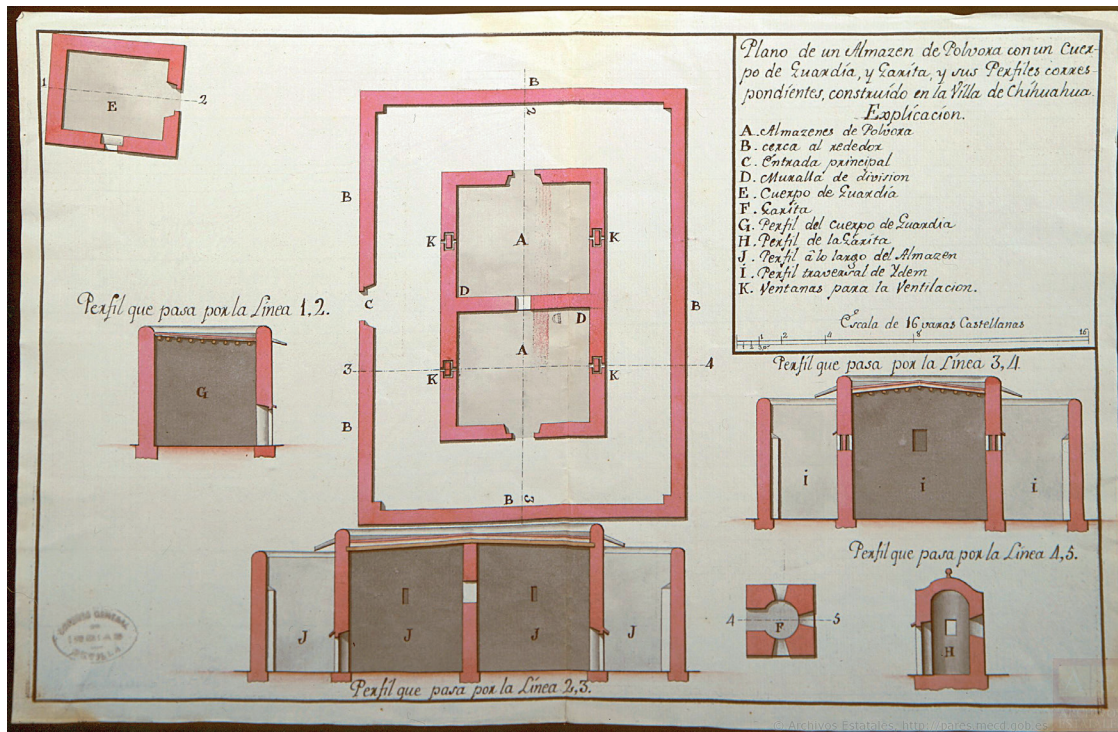 Plano de un Almazen de Polvora con un Cuer-
po de Guardia, y Garita, y sus Perfiles corres-
pondientes, construido en la Villa de Chihuahua.
Explicacion.
A. Almazenes de Polvora
B. cerca al rededor
C. Entrada principal
D. Muralla de division
E. Cuerpo de Guardia
F. Garita
G. Perfil del cuerpo de Guardia
H. Perfil de la Garita
J. Perfil â lo largo del Almazen
I. Perfil traversal de Ydem
K. Ventanas para la Ventilacion.
Escala de 16 varas Castellanas
1 2 4 8 16
1 E 2
B
2
B
K A K
D
C B
D
A
3 4
K K
B
B 3
Perfil que pasa por la Linea 1,2.
G
Perfil que pasa por la Linea 3,4.
i i i
J J J J
Perfil que pasa por la Linea 2,3.
Perfil que pasa por la Linea 4,5.
4 F 5
H
GENERAL
INDIAS
SEVILLA
Archivos Estatales, http://pares.mecd.gob.es